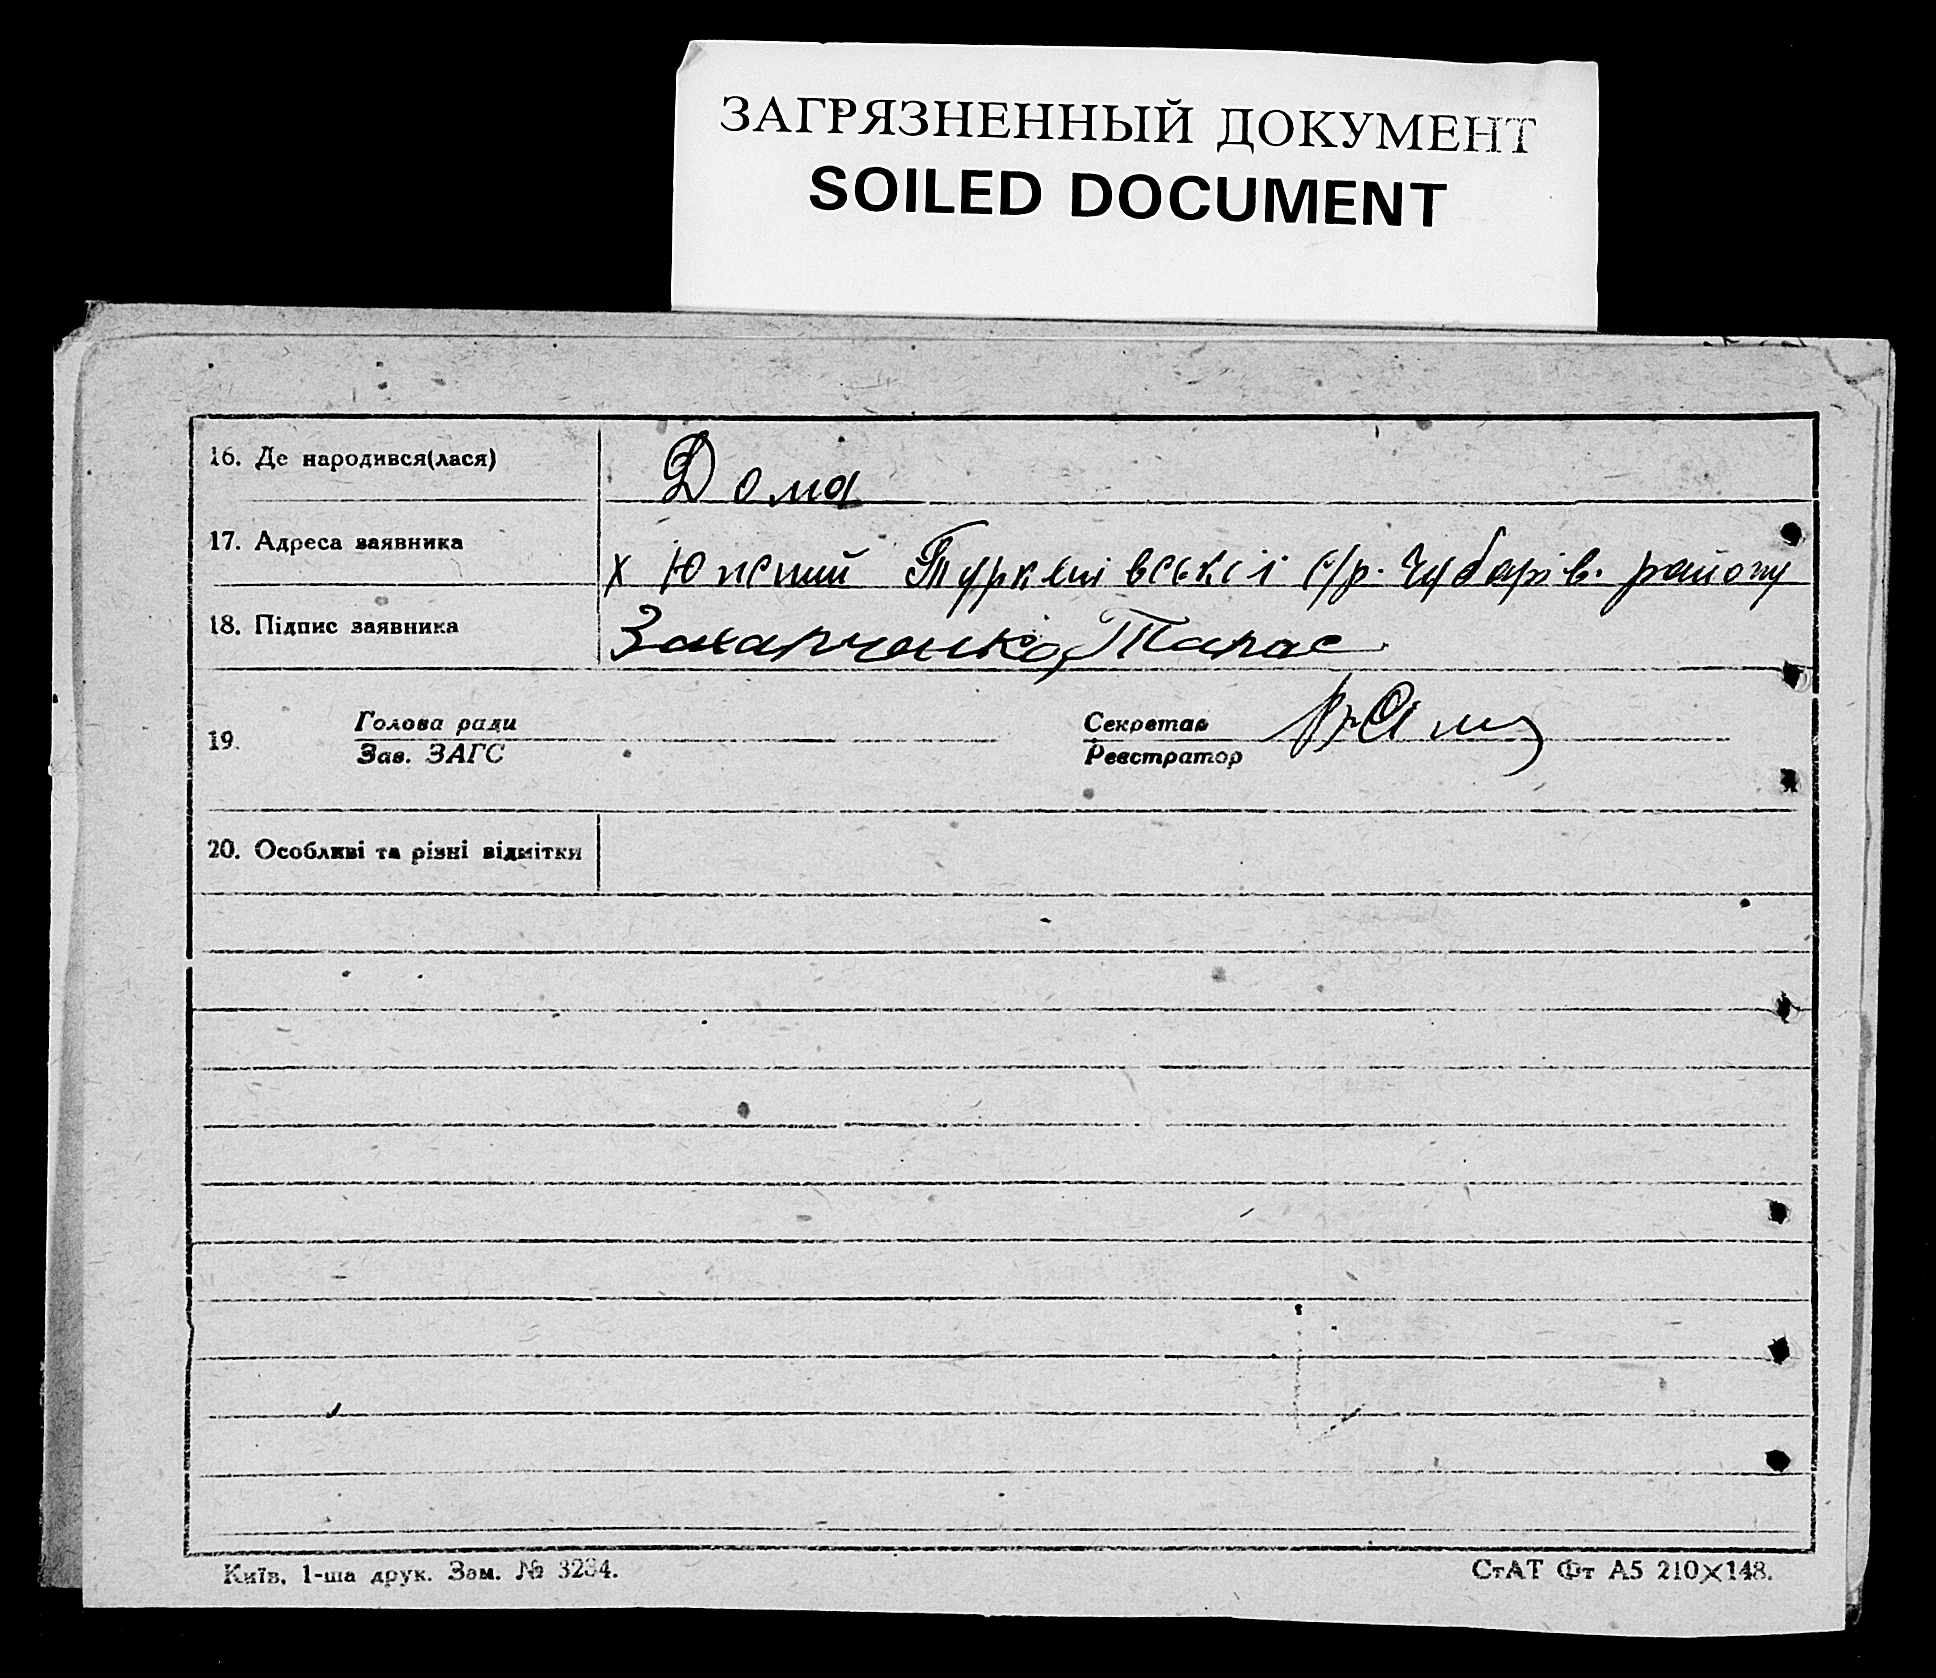 ЗАГРЯЗНЕННЫЙ ДОКУМЕНТ
SOILED DOCUMENT
16. Де народився(лася) Дома
17. Адреса заявника х с/р. Чубарів. району
18. Підпис заявника Захарченко Тарас
19. Голова ради Секретар
Зав. ЗАГС Реєстратор
20. Особливі та різні відмітки
Київ, 1-ша друк. Зам. № 3234.
СтАТ Фт А5 210×148.